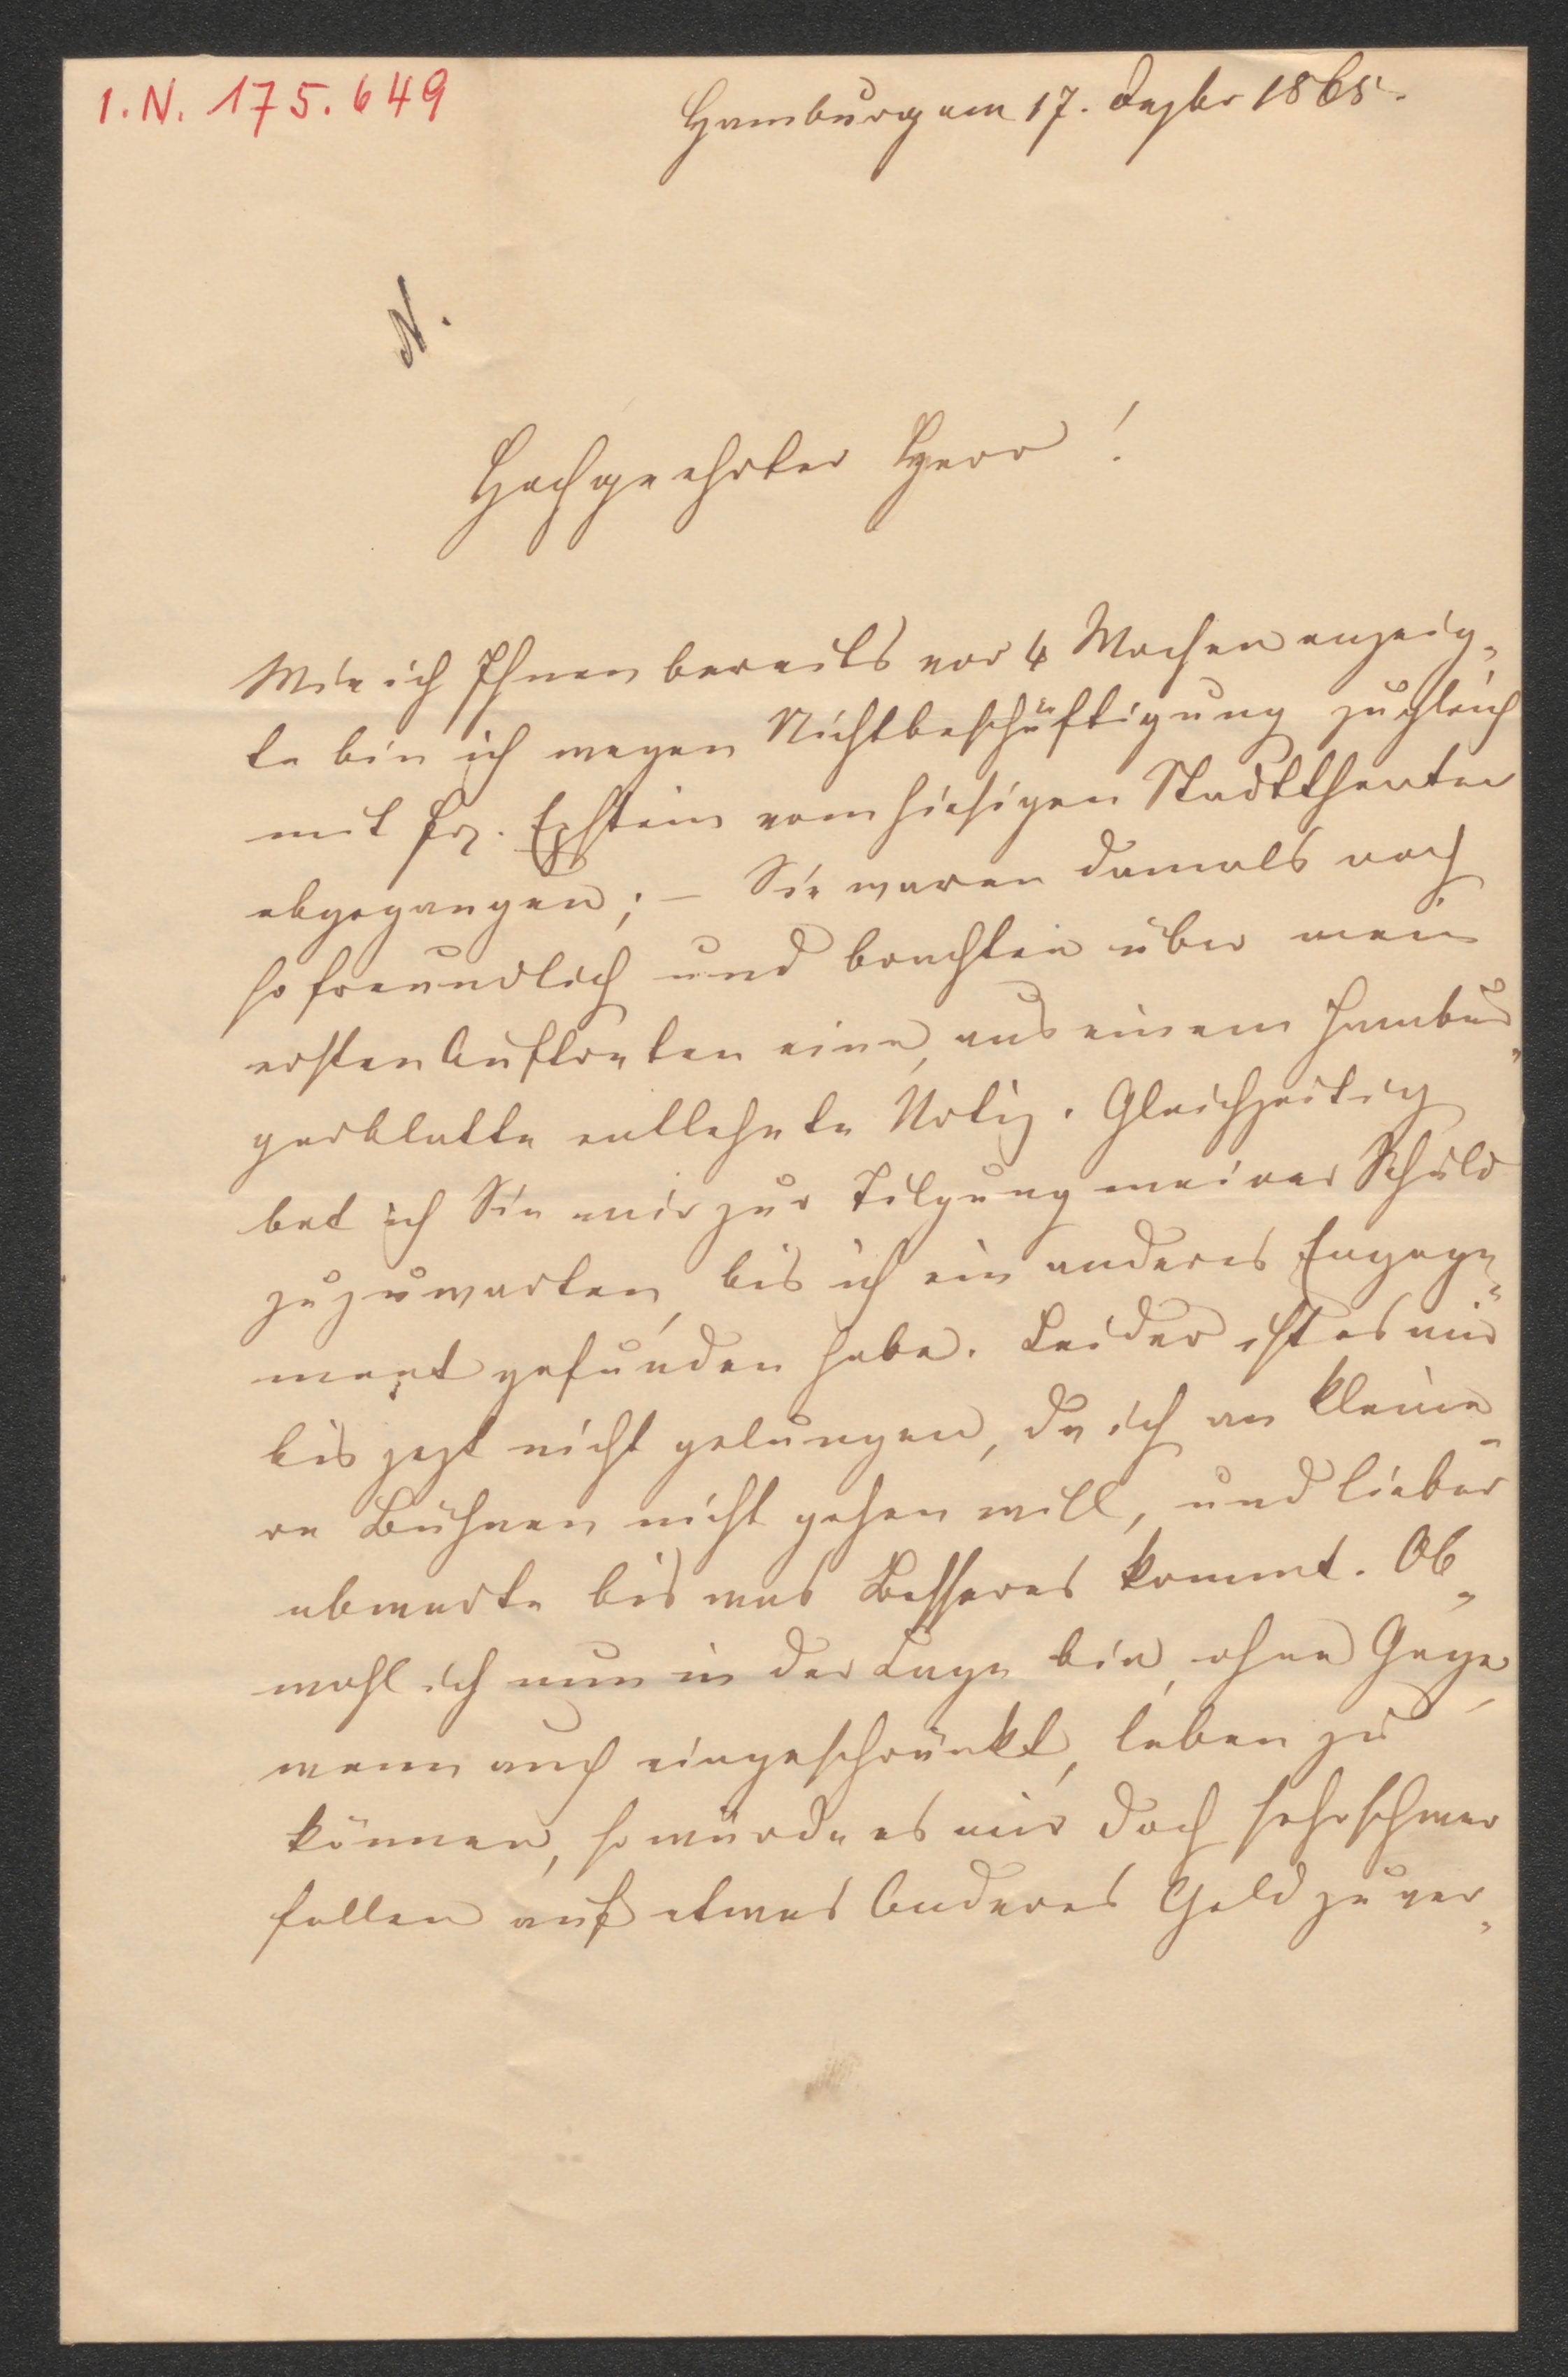 I.N. 175.649
Hamburg am 17. Dezbr 1865.
N.
Hochgeehrter Herr!
Wie ich Ihnen bereits vor 4 Wochen anzeig-
te bin ich wegen Nichtbeschäftigung zugleich
mit Epstein vom hiesigen Stadttheater
abgegangen; – Sie waren damals noch
so freundlich und brachten über mein
erstes Auftreten eine, aus einem Hambur-
gerblatte entlehnte Notiz. Gleichzeitig
bat ich Sie mir zur Tilgung meiner Schuld
zuzuwarten, bis ich ein anderes Engage-
ment gefunden habe. Leider ist es mir
bis jezt nicht gelungen, da ich an kleine-
re Bühnen nicht gehen will, und lieber
abwarte bis was Besseres kommt. Ob-
wohl ich nun in der Lage bin, ohne Gage,
wenn auch eingeschränkt, leben zu
können, so würde es mir doch sehr schwer
fallen auf etwas Anderes Geld zu ver-